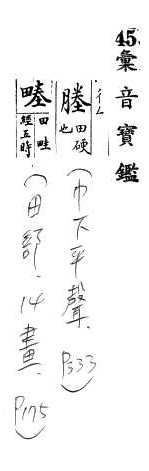 45彙音寶鑑
塍 田硬也
(巾下平聲. P333)
田畦
經五時
(田部. 14畫. P175)